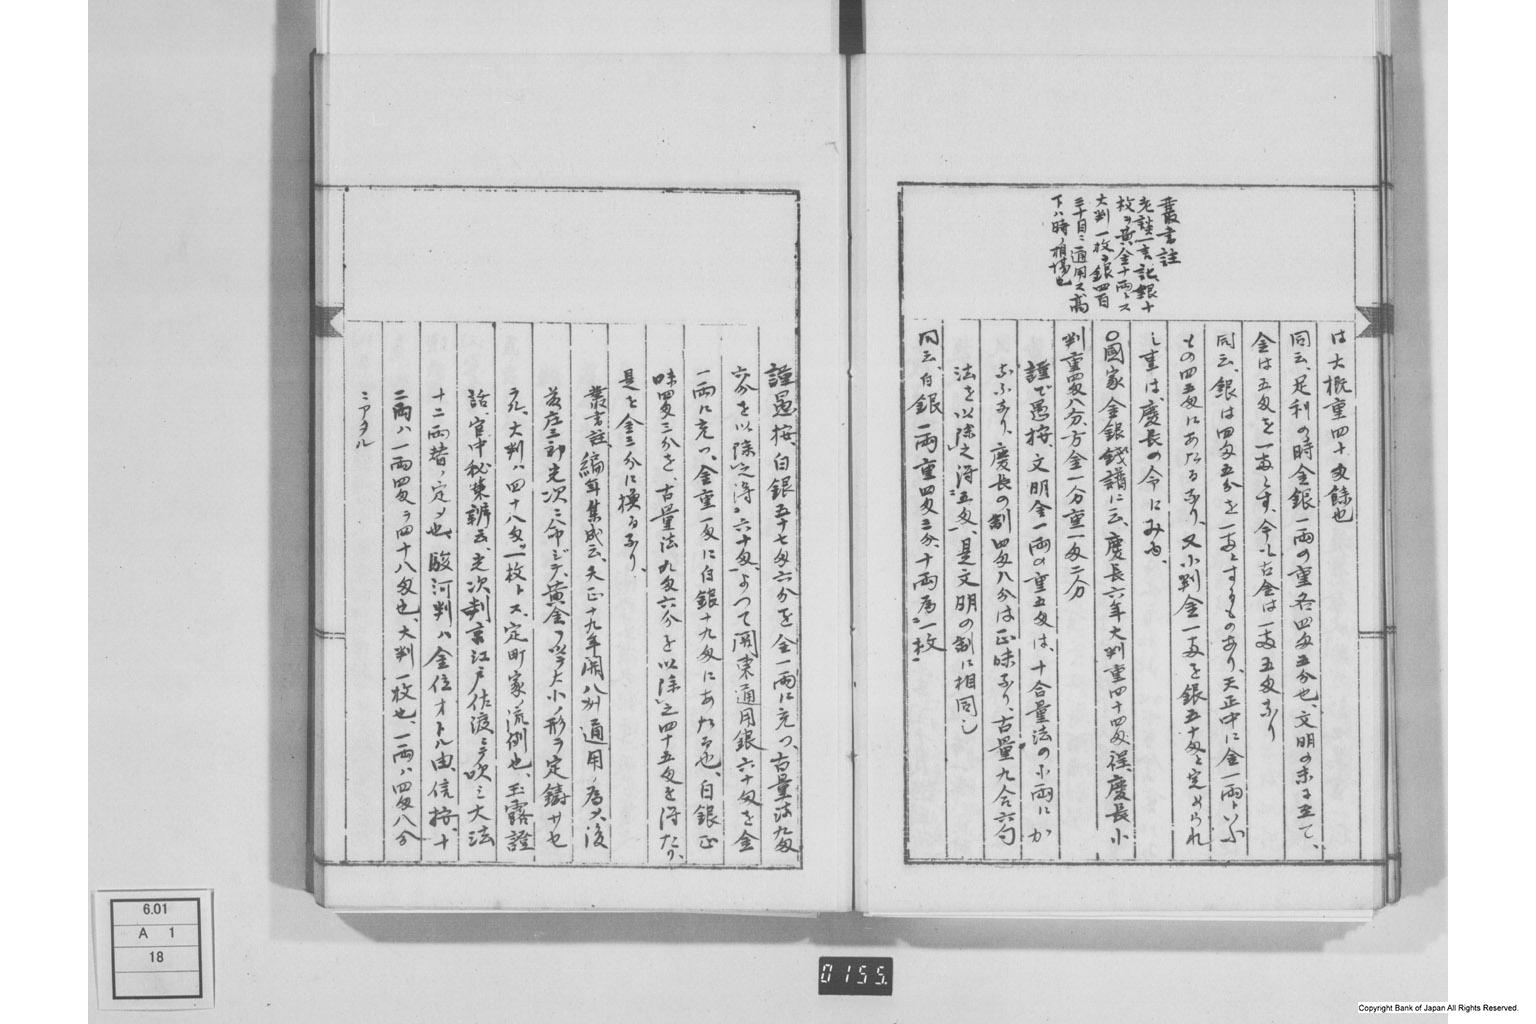 叢書註
老談一言記、銀十
枚ヲ黄金十両トス
大判一枚ヲ銀四百
三十目ニ通用ス高
下ハ時ノ相場也
は大概重四十匁餘也
同云、足利の時金銀一両の重各四匁五分也、文明の末に至て、
金は五匁を一両とす、今も古金は一両五匁なり
同云、銀は四匁五分を一両とするものあり、天正中に金一両といふ
もの四五匁にあたるなり、又小判金一両を銀五十匁と定められ
し事は、慶長の令にみゆ、
○國家金銀錢譜に云、慶長六年大判重四十四匁、慶長小
判重四匁八分、方金一分重一匁二分
謹で愚按、文明金一両の重五匁は、十合量法の小両にか
なふなり、慶長の制四匁八分は正味なり、古量九合六勺
法を以除之得五匁、是文明の制に相同し
同云、白銀一両重四匁三分、十両為一枚
謹愚按、白銀五十七匁六分を金一両に充つ、古量法九匁
六分を以除之得六十匁、よつて関東通用銀六十匁を金
一両に充つ、金重一匁に白銀十九匁にあたる也、白銀正
味四匁三分を、古量法九匁六分を以除之四十五匁を得たり、
是を金三分に換るなり、
叢書註、編年集成云、天正十九年関八州通用ノ為メ、後
藤庄三郎光次ニ命ジテ、黄金ヲ以テ大小ノ形ヲ定鋳サセ
ラル、大判ハ四十八匁、一枚トス、定町家ノ流例也、玉露證
話、官中秘策辨云、光次判京江戸佐渡ニテ吹ミ大法
十二両替ノ定メ也、駿河判ハ金位オトル由、信按、十
二両ハ一両四匁ヲ四十八匁也、大判一枚也、一両ハ四匁八分
ニアタル
6.01
A 1
18
0155.
Copyright Bank of Japan All Rights Reserved.